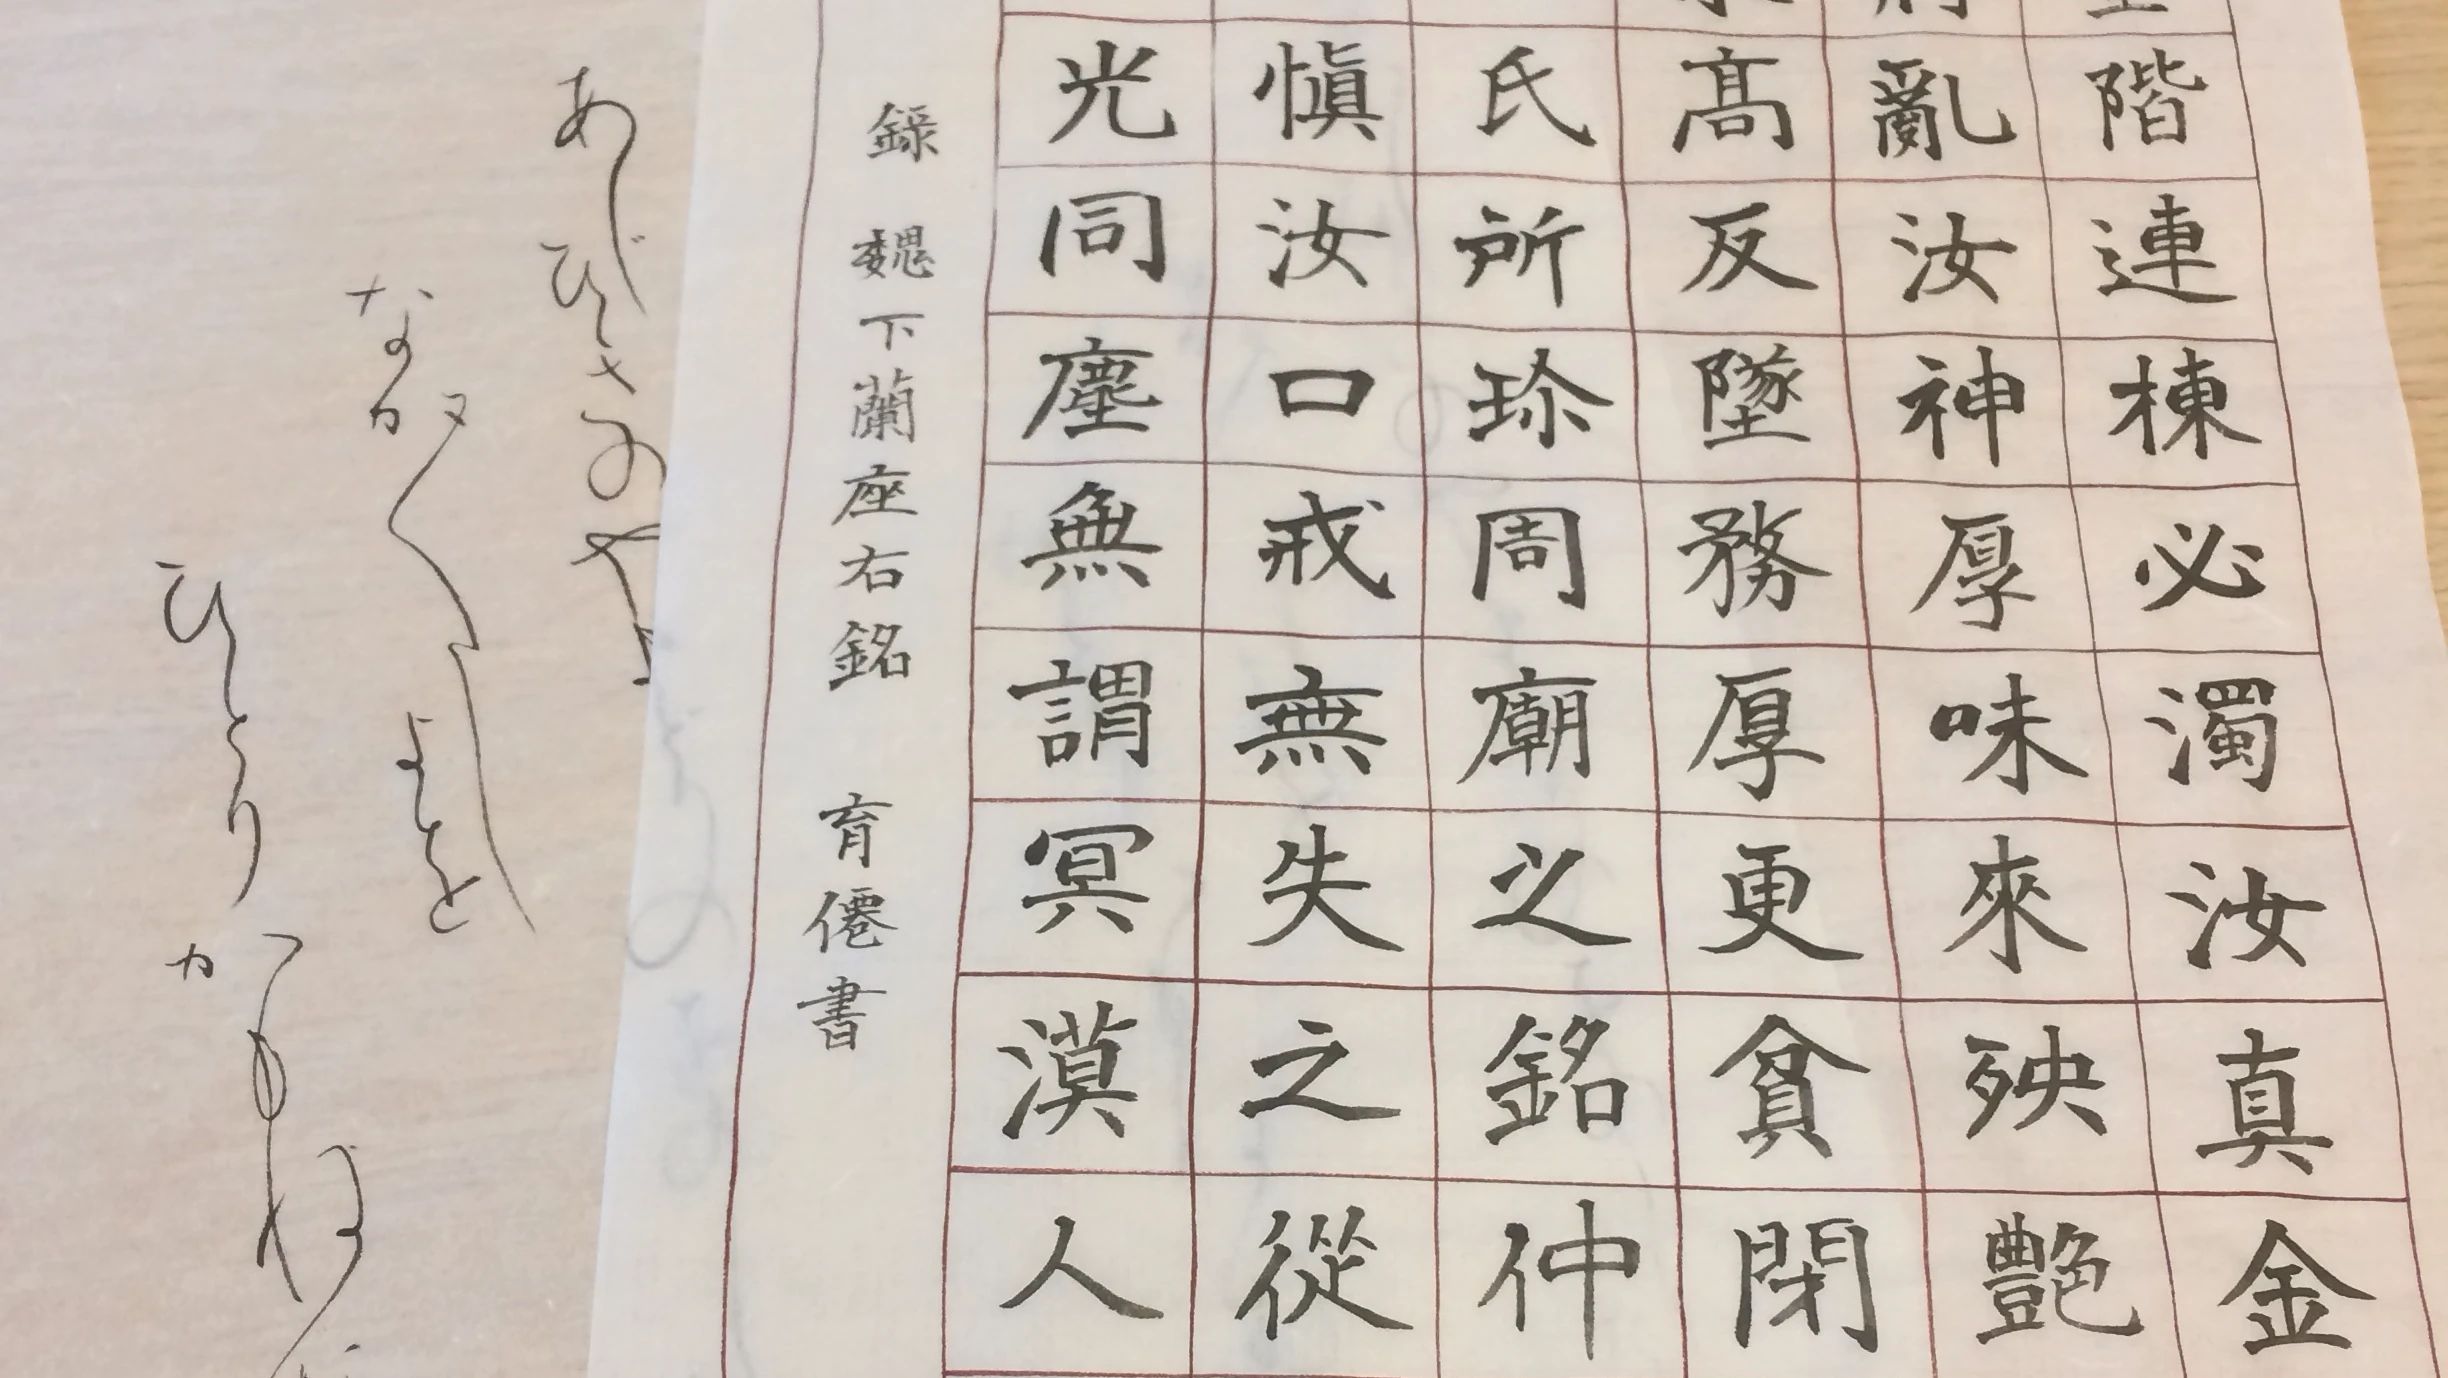 階連棟必濁汝真金
亂汝神厚味來殃艷
高反墜務厚更貧閉
氏所珎周廟之銘仲
慎汝口戒無失之從
光同塵無謂冥漠人
錄 魏下蘭座右銘 育僊書
あしびきの
ながくしよを
ひとりかもね